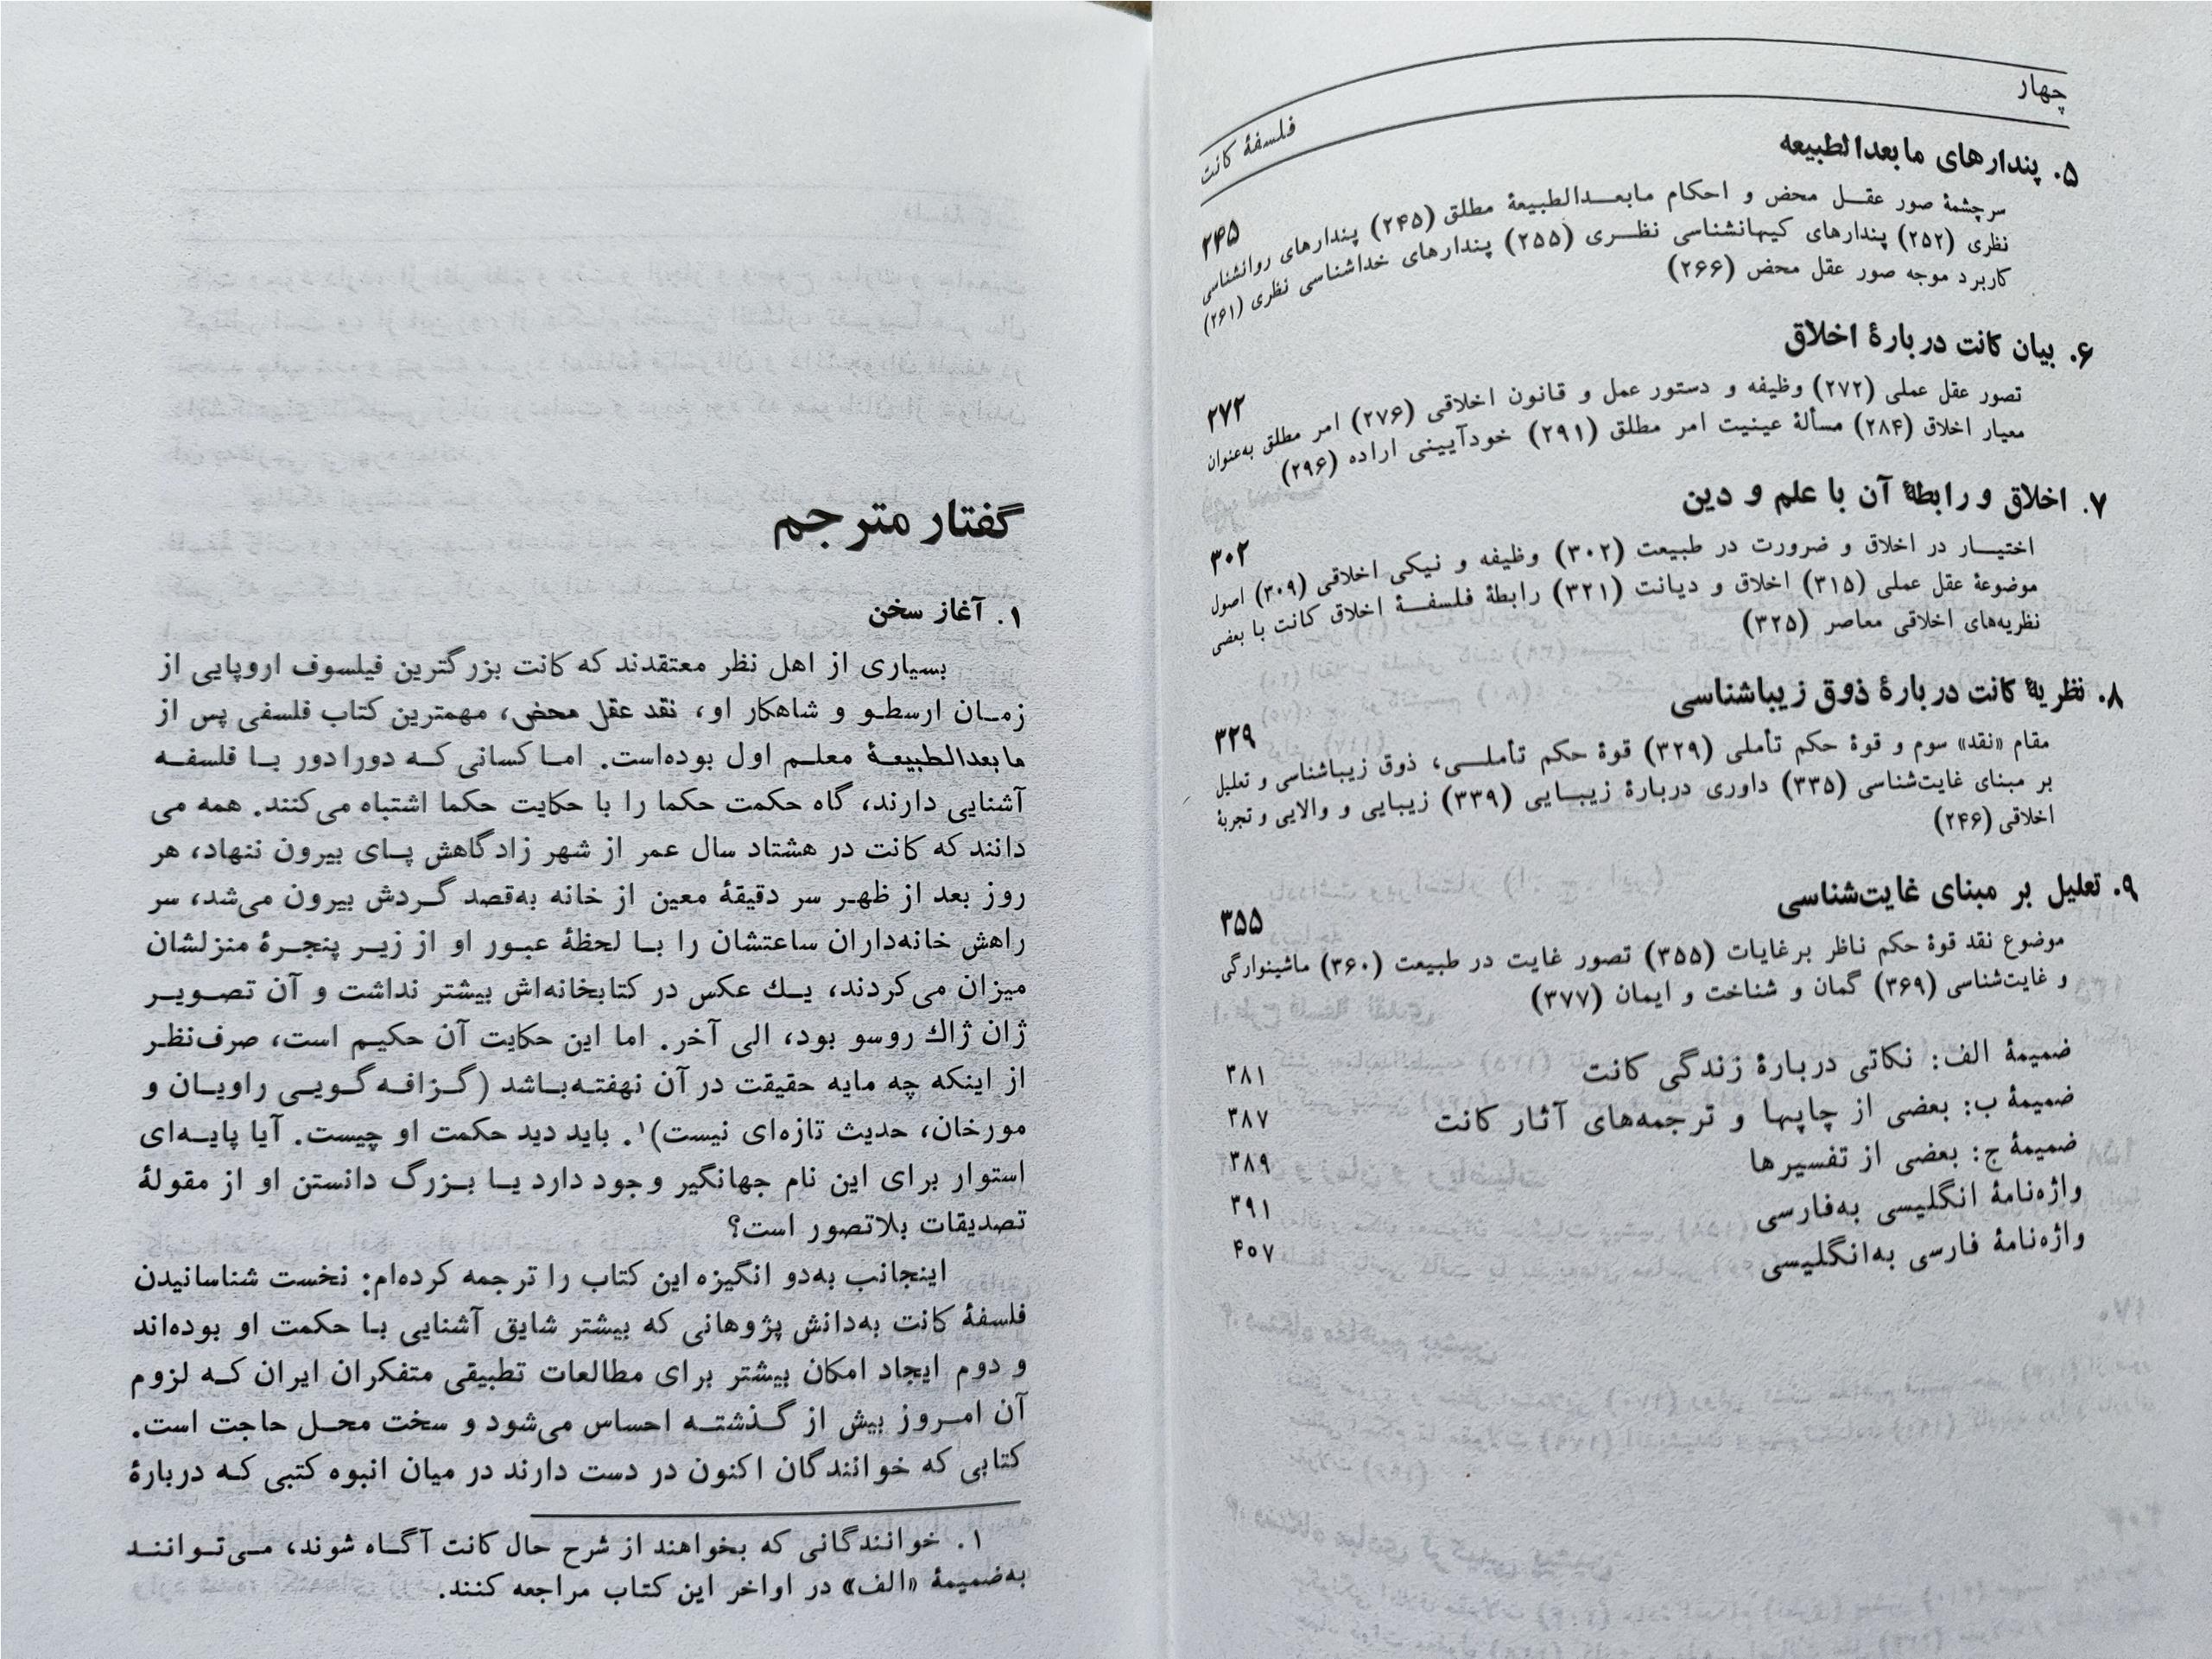 چهار
فلسفهٔ کانت
۵. پندارهای مابعدالطبیعه
۲۴۵
سرچشمهٔ صور عقل محض و احکام مابعدالطبیعهٔ مطلق (۲۴۵) پندارهای روانشناسی
نظری (۲۵۲) پندارهای کیهانشناسی نظری (۲۵۵) پندارهای خداشناسی نظری (۲۶۱)
کاربرد موجه صور عقل محض (۲۶۶)
۶. بیان کانت دربارهٔ اخلاق
۲۷۲
تصور عقل عملی (۲۷۲) وظیفه و دستور عمل و قانون اخلاقی (۲۷۶) امر مطلق به‌عنوان
معیار اخلاق (۲۸۴) مسألهٔ عینیت امر مطلق (۲۹۱) خودآیینی اراده (۲۹۶)
۷. اخلاق و رابطهٔ آن با علم و دین
۳۰۲
اختیار در اخلاق و ضرورت در طبیعت (۳۰۲) وظیفه و نیکی اخلاقی (۳۰۹) اصول
موضوعهٔ عقل عملی (۳۱۵) اخلاق و دیانت (۳۲۱) رابطهٔ فلسفهٔ اخلاق کانت با بعضی
نظریه‌های اخلاقی معاصر (۳۲۵)
۸. نظریهٔ کانت دربارهٔ ذوق زیباشناسی
۳۲۹
مقام «نقد» سوم و قوهٔ حکم تأملی (۳۲۹) قوهٔ حکم تأملی، ذوق زیباشناسی و تعلیل
بر مبنای غایت‌شناسی (۳۳۵) داوری دربارهٔ زیبایی (۳۳۹) زیبایی و والایی و تجربهٔ
اخلاقی (۲۴۶)
۹. تعلیل بر مبنای غایت‌شناسی
۳۵۵
موضوع نقد قوهٔ حکم ناظر برغایات (۳۵۵) تصور غایت در طبیعت (۳۶۰) ماشینوارگی
و غایت‌شناسی (۳۶۹) گمان و شناخت و ایمان (۳۷۷)
ضمیمهٔ الف: نکاتی دربارهٔ زندگی کانت ۳۸۱
ضمیمهٔ ب: بعضی از چاپها و ترجمه‌های آثار کانت ۳۸۷
ضمیمهٔ ج: بعضی از تفسیرها ۳۸۹
واژه‌نامهٔ انگلیسی به‌فارسی ۳۹۱
واژه‌نامهٔ فارسی به‌انگلیسی ۴۰۷
گفتار مترجم
۱. آغاز سخن
بسیاری از اهل نظر معتقدند که کانت بزرگترین فیلسوف اروپایی از
زمان ارسطو و شاهکار او، نقد عقل محض، مهمترین کتاب فلسفی پس از
مابعدالطبیعهٔ معلم اول بوده‌است. اما کسانی که دورادور با فلسفه
آشنایی دارند، گاه حکمت حکما را با حکایت حکما اشتباه می‌کنند. همه می
دانند که کانت در هشتاد سال عمر از شهر زادگاهش پای بیرون ننهاد، هر
روز بعد از ظهر سر دقیقهٔ معین از خانه به‌قصد گردش بیرون می‌شد، سر
راهش خانه‌داران ساعتشان را با لحظهٔ عبور او از زیر پنجرهٔ منزلشان
میزان می‌کردند، یك عکس در کتابخانه‌اش بیشتر نداشت و آن تصویر
ژان ژاك روسو بود، الی آخر. اما این حکایت آن حکیم است، صرف‌نظر
از اینکه چه مایه حقیقت در آن نهفته‌باشد (گزافه‌گویی راویان و
مورخان، حدیث تازه‌ای نیست)۱. باید دید حکمت او چیست. آیا پایه‌ای
استوار برای این نام جهانگیر وجود دارد یا بزرگ دانستن او از مقولهٔ
تصدیقات بلاتصور است؟
اینجانب به‌دو انگیزه این کتاب را ترجمه کرده‌ام: نخست شناسانیدن
فلسفهٔ کانت به‌دانش پژوهانی که بیشتر شایق آشنایی با حکمت او بوده‌اند
و دوم ایجاد امکان بیشتر برای مطالعات تطبیقی متفکران ایران که لزوم
آن امروز بیش از گذشته احساس می‌شود و سخت محل حاجت است.
کتابی که خوانندگان اکنون در دست دارند در میان انبوه کتبی که دربارهٔ
۱. خوانندگانی که بخواهند از شرح حال کانت آگاه شوند، می‌توانند
به‌ضمیمهٔ «الف» در اواخر این کتاب مراجعه کنند.